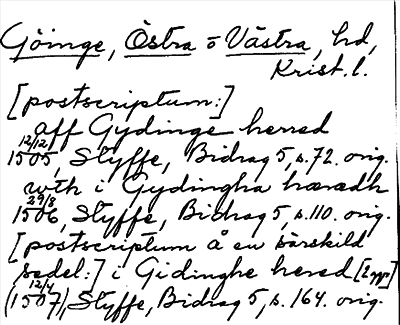 Göinge, Östra o Västra, hd,
Krist. l.
[postscriptum:]
aff Gydinge herred
12/12
1505, Styffe, Bidrag 5, s. 72. orig.
wth i Gydingha hæradh
29/8
1506, Styffe, Bidrag 5, s. 110. orig.
[postscriptum å en särskild
sedel:] i Gidinghe hered [2 ggr]
12/4
(1507), Styffe, Bidrag 5, s. 164. orig.